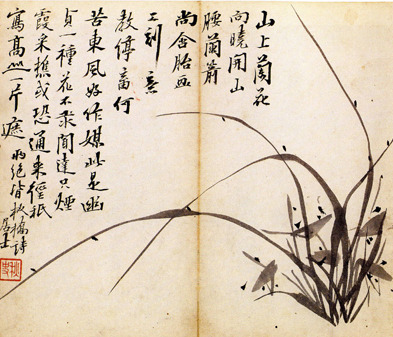 山上蘭花
向曉開山
腰蘭箭
尚含胎画
工刻意
教停畜何
苦東風好作媒此是幽
貞一種花不求聞達只煙
霞采樵或恐通來徑秖
寫高山一片遮
兩絕皆板橋詩
居士